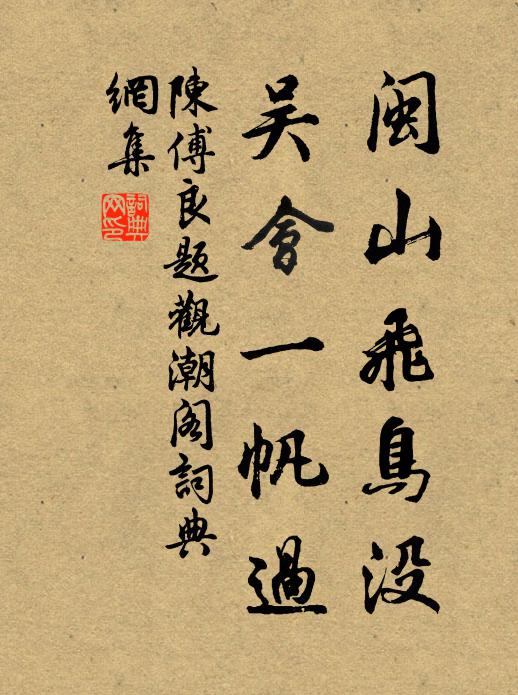 閩山飛鳥没
吳會一帆過
陳傅良題觀潮阁詞典
網集
詞典
网印